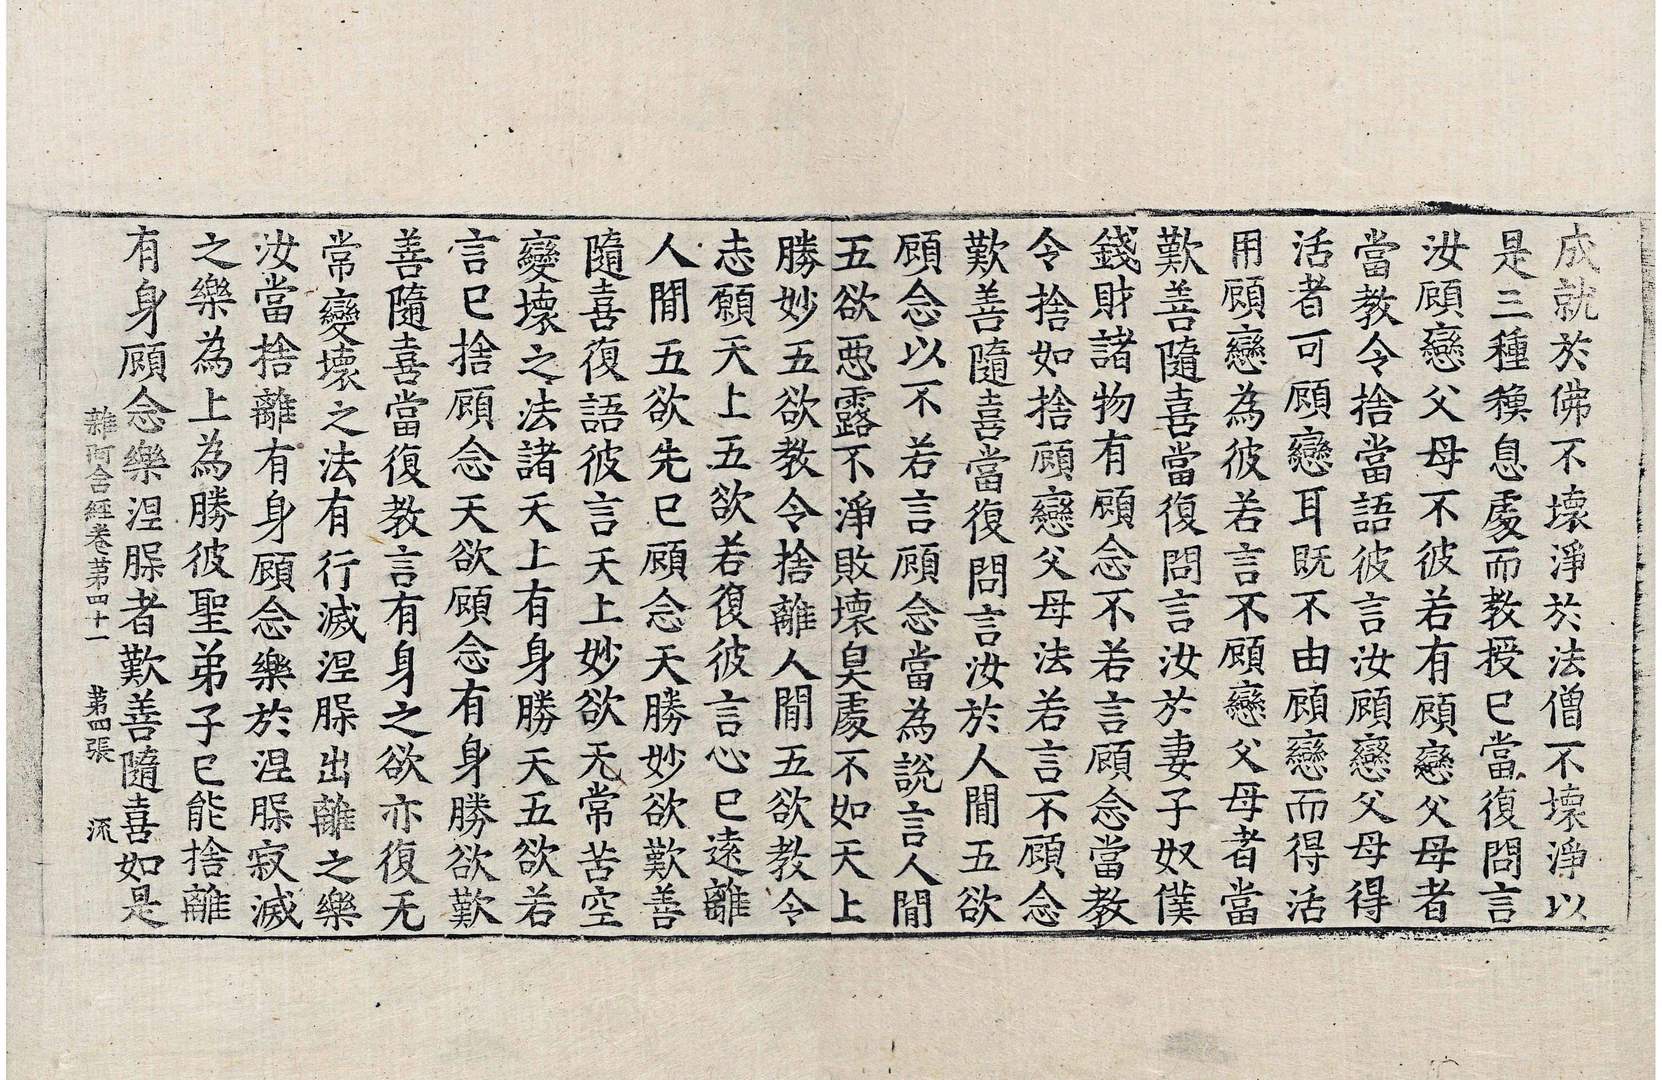 成就於佛不壞淨於法僧不壞淨以
是三種穌息處而教授已當復問言
汝顧戀父母不彼若有顧戀父母者
當教令捨當語彼言汝顧戀父母得
活者可顧戀耳既不由顧戀而得活
用顧戀為彼若言不顧戀父母者當
歎善隨喜當復問言汝於妻子奴僕
錢財諸物有顧念不若言顧念當教
令捨如捨顧戀父母法若言不顧念
歎善隨喜當復問言汝於人間五欲
顧念以不若言顧念當為說言人間
五欲惡露不淨敗壞臭處不如天上
勝妙五欲教令捨離人間五欲教令
志願天上五欲若復彼言心已遠離
人間五欲先已顧念天勝妙欲歎善
隨喜復語彼言天上妙欲无常苦空
變壞之法諸天上有身勝天五欲若
言已捨顧念天欲顧念有身勝欲歎
善隨喜當復教言有身之欲亦復无
常變壞之法有行滅涅槃出離之樂
汝當捨離有身顧念樂於涅槃寂滅
之樂為上為勝彼聖弟子已能捨離
有身顧念樂涅槃者歎善隨喜如是
雜阿含經卷第四十一 第四張 流